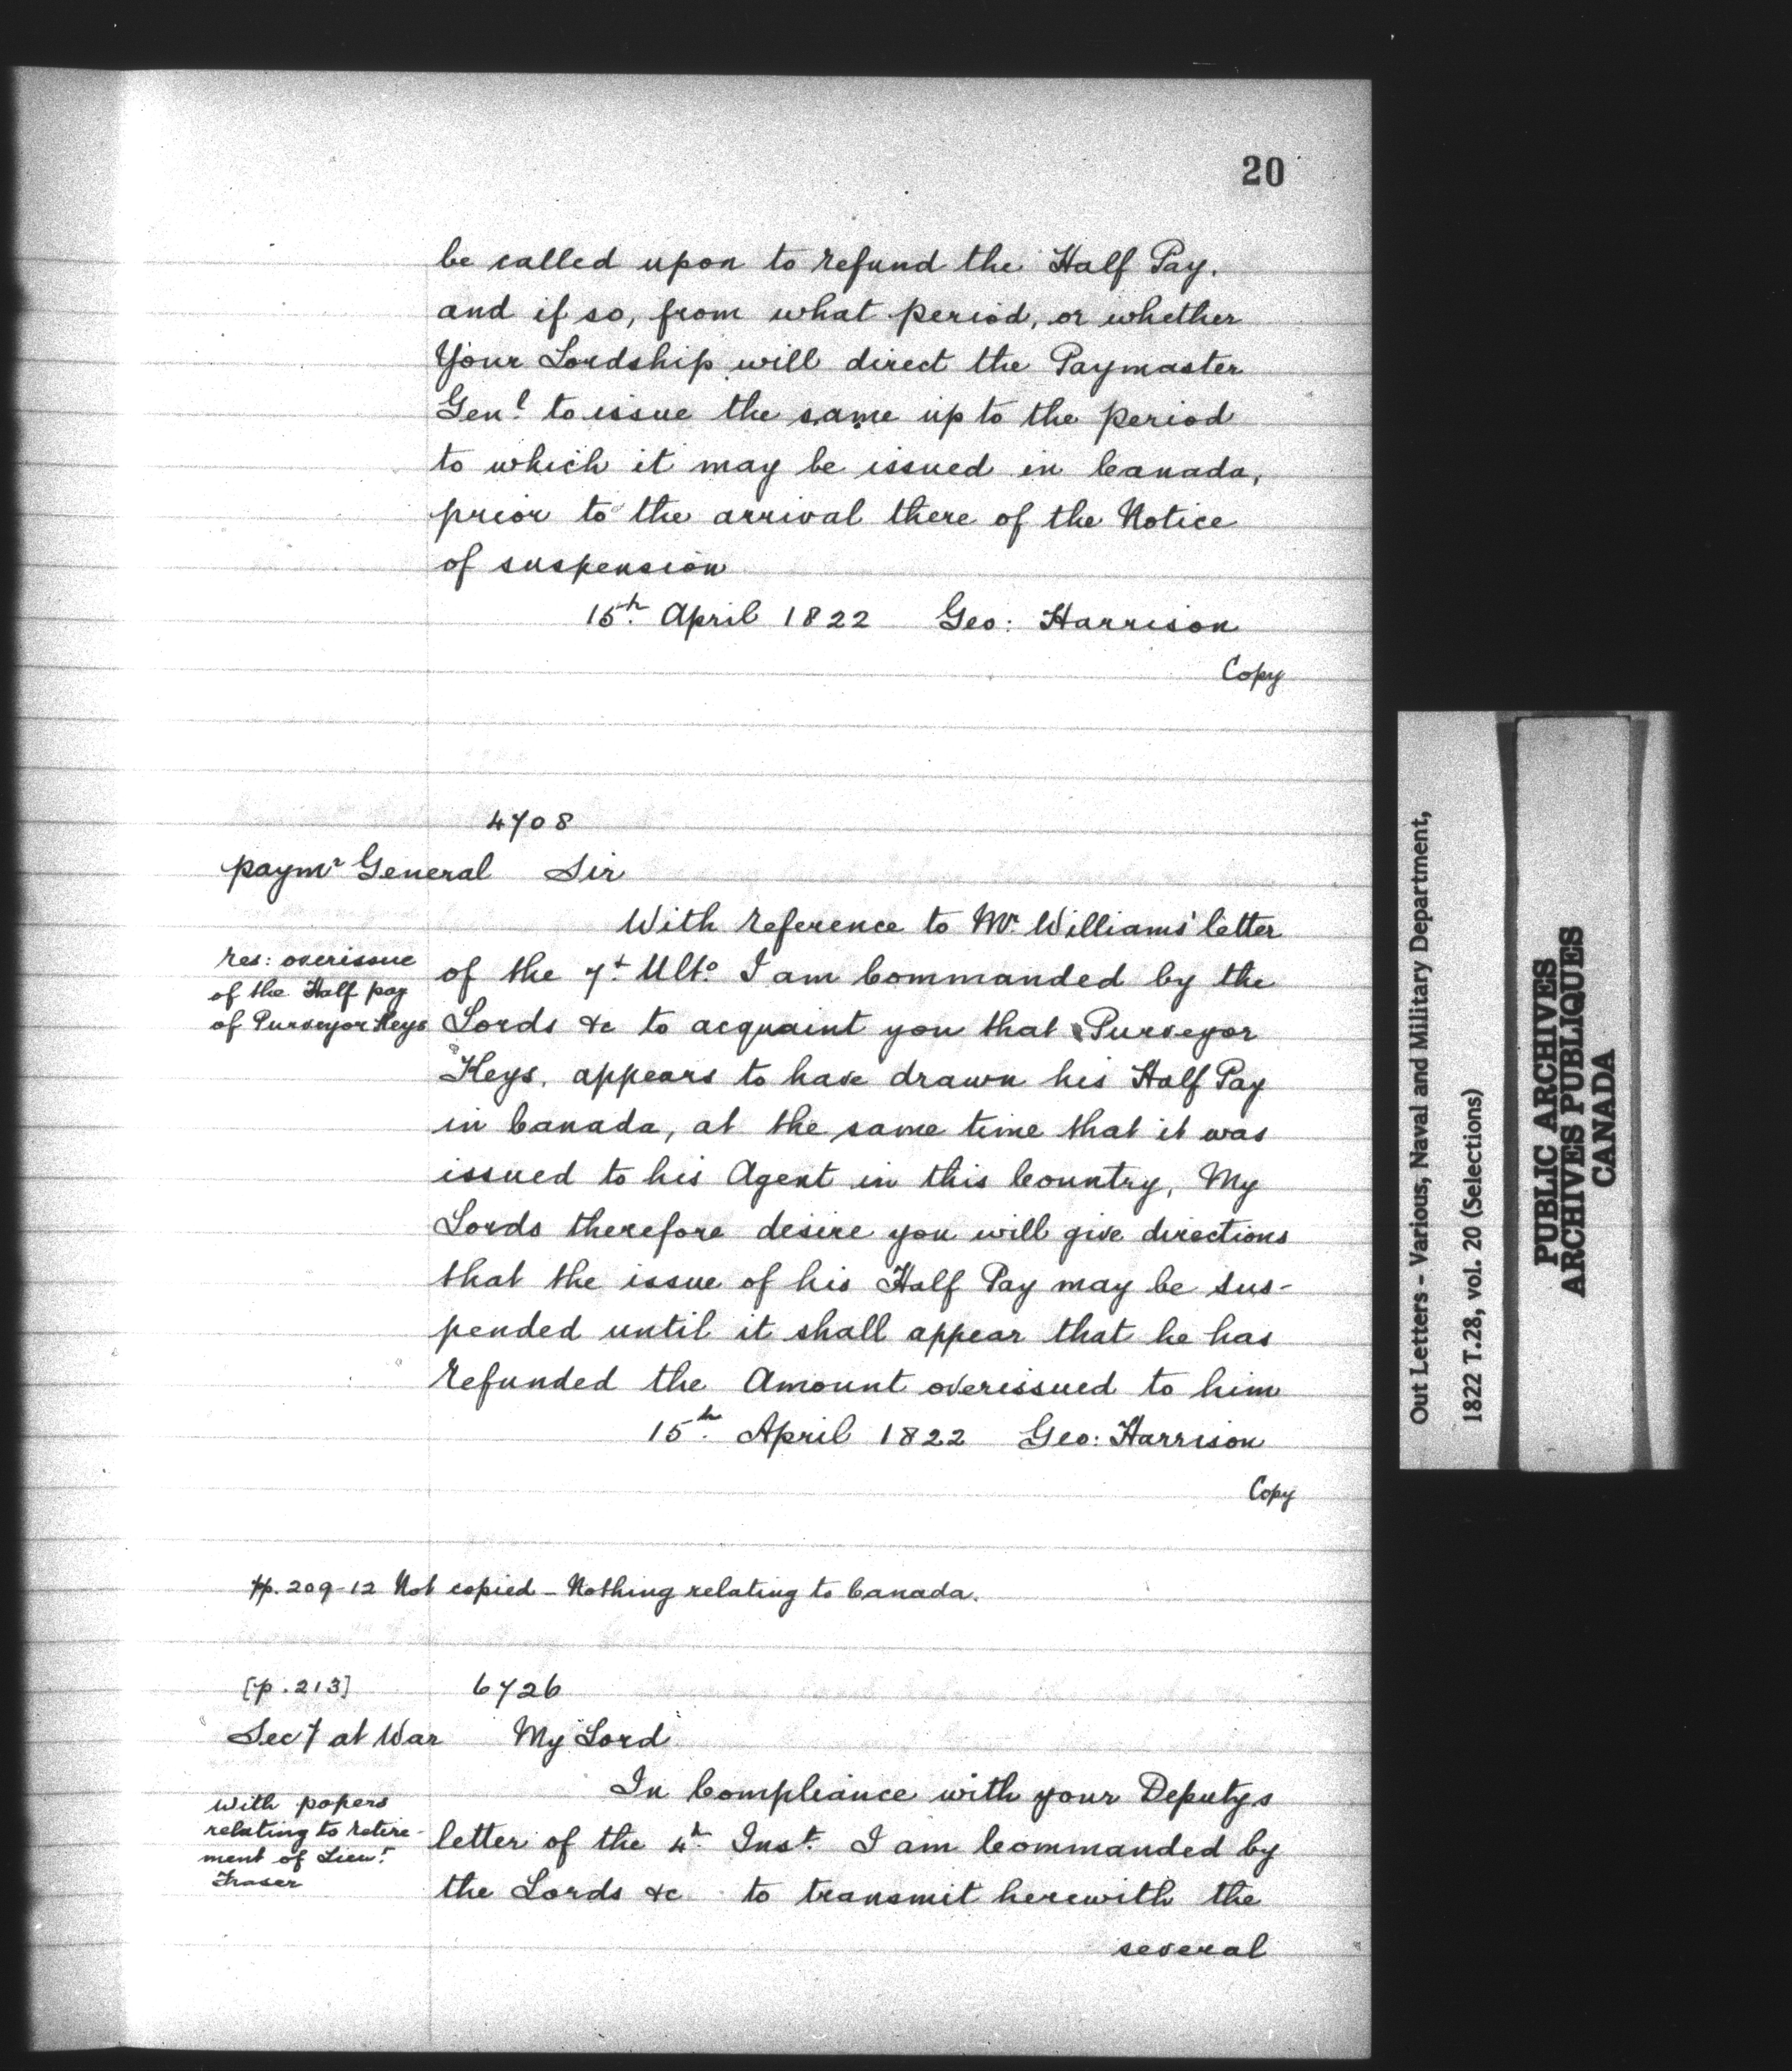 20
be called upon to refund the Half Pay.
and if so, from what period, or whether
Your Lordship will direct the Paymaster
Genl. to issue the same up to the period
to which it may be issued in Canada,
prior to the arrival there of the Notice
of suspension
15th. April 1822 Geo: Harrison
Copy
4708
paymr General Sir
With reference to Mr. Williams' letter
res: overissue
of the Half pay
of Purveyor Keys
of the 7t. Ulto. I am Commanded by the
Lords &c to acquaint you that Purveyor
Keys, appears to have drawn his Half Pay
in Canada, at the same time that it was
issued to his Agent in this Country, My
Lords therefore desire you will give directions
that the issue of his Half Pay may be sus-
pended until it shall appear that he has
refunded the Amount overissued to him
15h. April 1822 Geo: Harrison
Copy
pp. 209-12 Not copied - Nothing relating to Canada.
[p. 213] 6726
Secy at War My Lord
In Compliance with your Deputys
With papers
relating to retire-
ment of Lieut.
Fraser
letter of the 4h. Inst. I am Commanded by
the Lords &c to transmit herewith the
several
Out Letters - Various, Naval and Military Department,
1822 T.28, vol. 20 (Selections)
PUBLIC ARCHIVES
ARCHIVES PUBLIQUES
CANADA